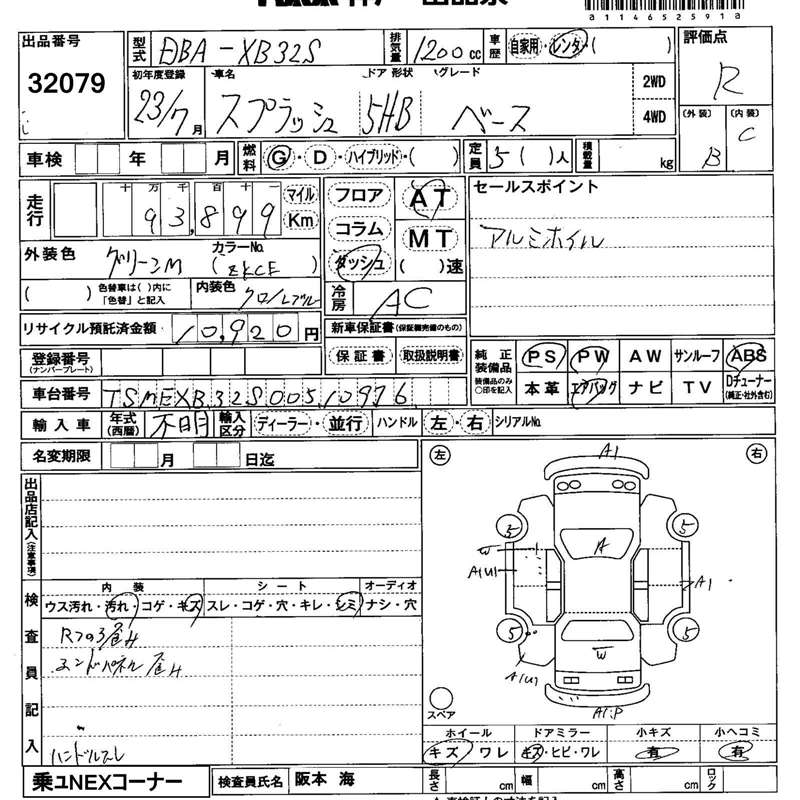 a11465259​1a
出品番号
32079
型式 DBA-XB32S
排気量 1200 cc
車歴 自家用・レンタ・( )
評価点 R
初年度登録 23/7月
車名 スプラッシュ
ドア 形状 5HB
グレード ベース
2WD
4WD
(外装) B
(内装) C
車検 年 月
燃料 G・D・ハイブリッド・( )
定員 5( )人
積載量 kg
走行 十万千百十一
93,899
マイル
Km
フロア
コラム
ダッシュ
AT
MT
( )速
セールスポイント
アルミホイル
外装色 グリーンM
カラーNo. (ZKCE)
( ) 色替車は( )内に「色替」と記入
内装色
冷房 AC
リサイクル預託済金額 10,920円
新車保証書(保証継続のもの)
保証書 取扱説明書
登録番号
(ナンバープレート)
純正装備品
装備品のみ○印を記入
PS PW AW サンルーフ ABS
本革 エアバッグ ナビ TV Dチューナー
(純正・社外含む)
車台番号 TSMEXB32S00510976
輸入車 年式(西暦) 不明 輸入区分 ディーラー・並行 ハンドル 左・右 シリアルNo.
名変期限 月 日迄
出品店記入(注意事項)
左
右
A1
5
5
W
A
A1(U1)
A1
5
5
W
A1(U1)
A1:P
スペア
検査員記入
内装 シート オーディオ
ウス汚れ・汚れ・コゲ・キズ スレ・コゲ・穴・キレ・シミ ナシ・穴
エンドパネル
ハンドルスレ
ホイール ドアミラー 小キズ 小ヘコミ
キズ ワレ キズ・ヒビ・ワレ 有 有
乗ュNEXコーナー
検査員氏名 阪本 海
長さ cm 幅 cm 高さ cm ロック